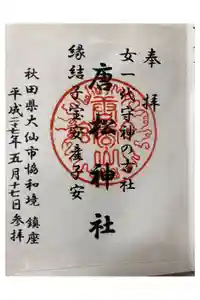 奉拝
女一代守神の古社
唐松神社
縁結子宝安産子安
秋田県大仙市協和境鎮座
平成二十七年五月十七日参拝